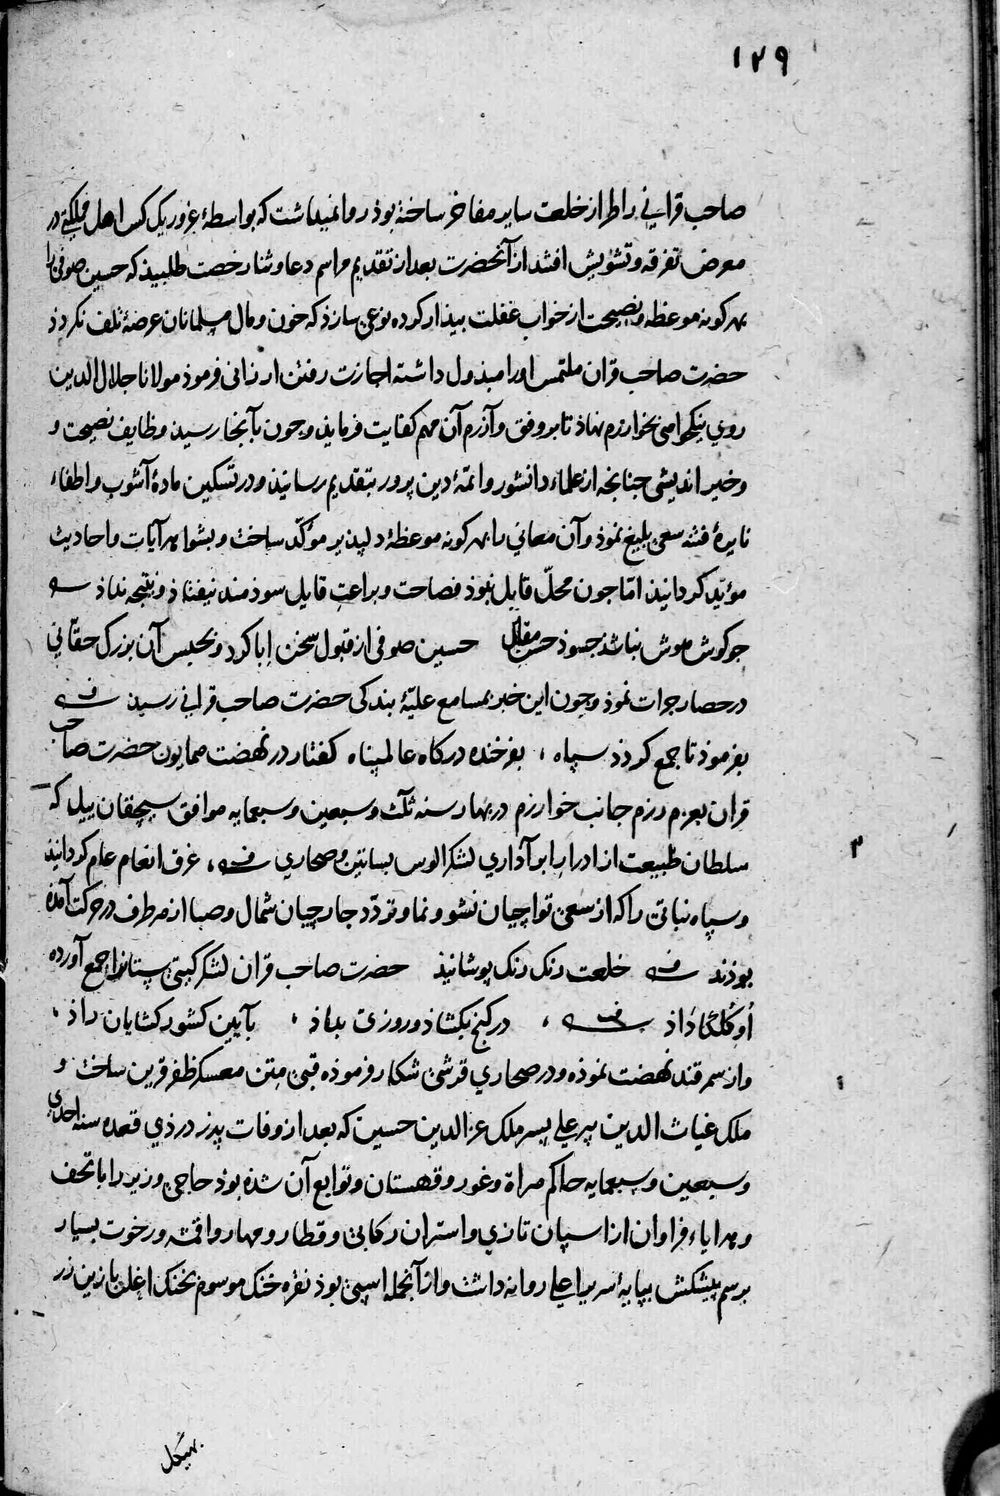 ۱۲۹
صاحب قرانی را طراز خلعت سایر مفاخر ساخته بوذ روا نمیداشت که بواسطهٔ غرور یک کس اهل مملکتی در
معرض تفرقه و تشویش افتند از آنحضرت بعد از تقدیم مراسم دعا و ثنا رخصت طلبیذ که حسین صوفی را
بهر کونه موعظه و نصیحت از خواب غفلت بیذار کرده نوعی سازذ که خون و مال مسلمانان عرضهٔ تلف نکردذ
حضرت صاحب قران ملتمس او را مبذول داشته اجازت رفتن ارزانی فرموذ مولانا جلال الدین
روی بخوارزم نهاذ تا برفق و آزرم آن مهم کفایت فرمایذ و چون بآنجا رسیذ وظایف نصیحت و
و خیر اندیشی جنانجه از علماء دانشور و ائمهٔ دین پرور بتقدیم رسانیذ و در تسکین مادهٔ آشوب و اطفاء
نایرهٔ فتنه سعی بلیغ نموذ و آن معانی را بهر کونه موعظهٔ دلپذیر مؤکّد ساخت و بشواهد آیات و احادیث
مؤیّد کردانیذ امّا جون محلّ قابل نبوذ فصاحت و براعت قایل سوذمند نیفتاذ و نتیجه نداذ
جو کوش هوش نباشد جسوذ حسن مقال حسین صوفی از قبول سخن ابا کرد و بحبس آن بزرک حقّانی
در حصار جرات نموذ و جون این خبر بمسامع علیّهٔ بندکی حضرت صاحب قرانی رسیذ
بفرموذ تا جمع کردذ سپاه ، بفرخنده درکاه عالمپناه کفتار در نهضت همایون حضرت صاحب
قران بعزم رزم جانب خوارزم در بهار سنه ثلث و سبعین و سبعمایه موافق سیچقان ییل که
سلطان طبیعت از ادرار ابر آذاری لشکر الوس بساتین و صحاری ، غرق انعام عام کردانیذ
و سپاه نباتی را که از سعی تواجیان نشو و نما و تردّد جارجیان شمال و صبا از هر طرف در حرکت آمذه
بوذند خلعت رنک رنک پوشانیذ حضرت صاحب قران لشکر کیتی ستانرا جمع آورده
اُوکُلکا داذ ، در کنج بکشاذ و روزی بداذ ، بآیین کشور کشایان راذ ،
و از سمرقند نهضت نموذه و در صحاری قرشی شکار فرموذه قبی متن معسکر ظفر قرین ساخت و
ملک غیاث الدین پیر علی پسر ملک عز الدین حسین که بعد از وفات پدر در ذی قعده سنه احدی
و سبعین و سبعمایه حاکم هراة و غور و قهستان و توابع آن شذه بوذ حاجی وزیر را با تحف
و هدایاء فراوان از اسپان تازی و استران رکابی و قطار و مهار و اقمشه و رخوت بسیار
برسم پیشکش بپایهٔ سریر اعلی روانه داشت و از آنجمله اسپی بوذ نقره خنک موسوم بخنک اغلن با زین زر
۳
بهیکل